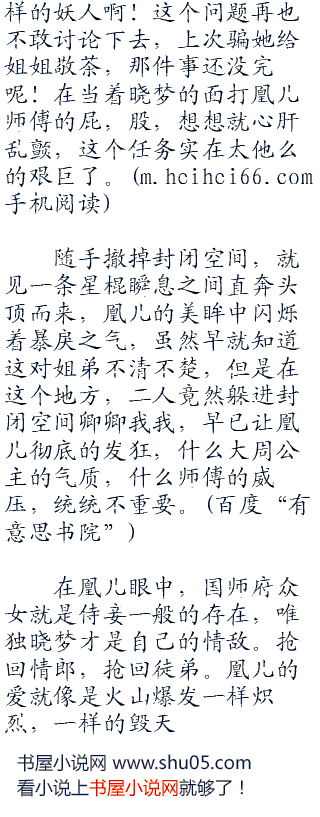 样的妖人啊！这个问题再也
不敢讨论下去，上次骗她给
姐姐敬茶，那件事还没完
呢！在当着晓梦的面打凰儿
师傅的屁，股，想想就心肝
乱颤，这个任务实在太他么
的艰巨了。(m.hcihci66.com
手机阅读)
随手撤掉封闭空间，就
见一条星棍瞬息之间直奔头
顶而来，凰儿的美眸中闪烁
着暴戾之气，虽然早就知道
这对姐弟不清不楚，但是在
这个地方，二人竟然躲进封
闭空间卿卿我我，早已让凰
儿彻底的发狂，什么大周公
主的气质，什么师傅的威
压，统统不重要。(百度“有
意思书院”)
在凰儿眼中，国师府众
女就是侍妾一般的存在，唯
独晓梦才是自己的情敌。抢
回情郎，抢回徒弟。凰儿的
爱就像是火山爆发一样炽
烈，一样的毁天
书屋小说网 www.shu05.com
看小说上书屋小说网就够了！